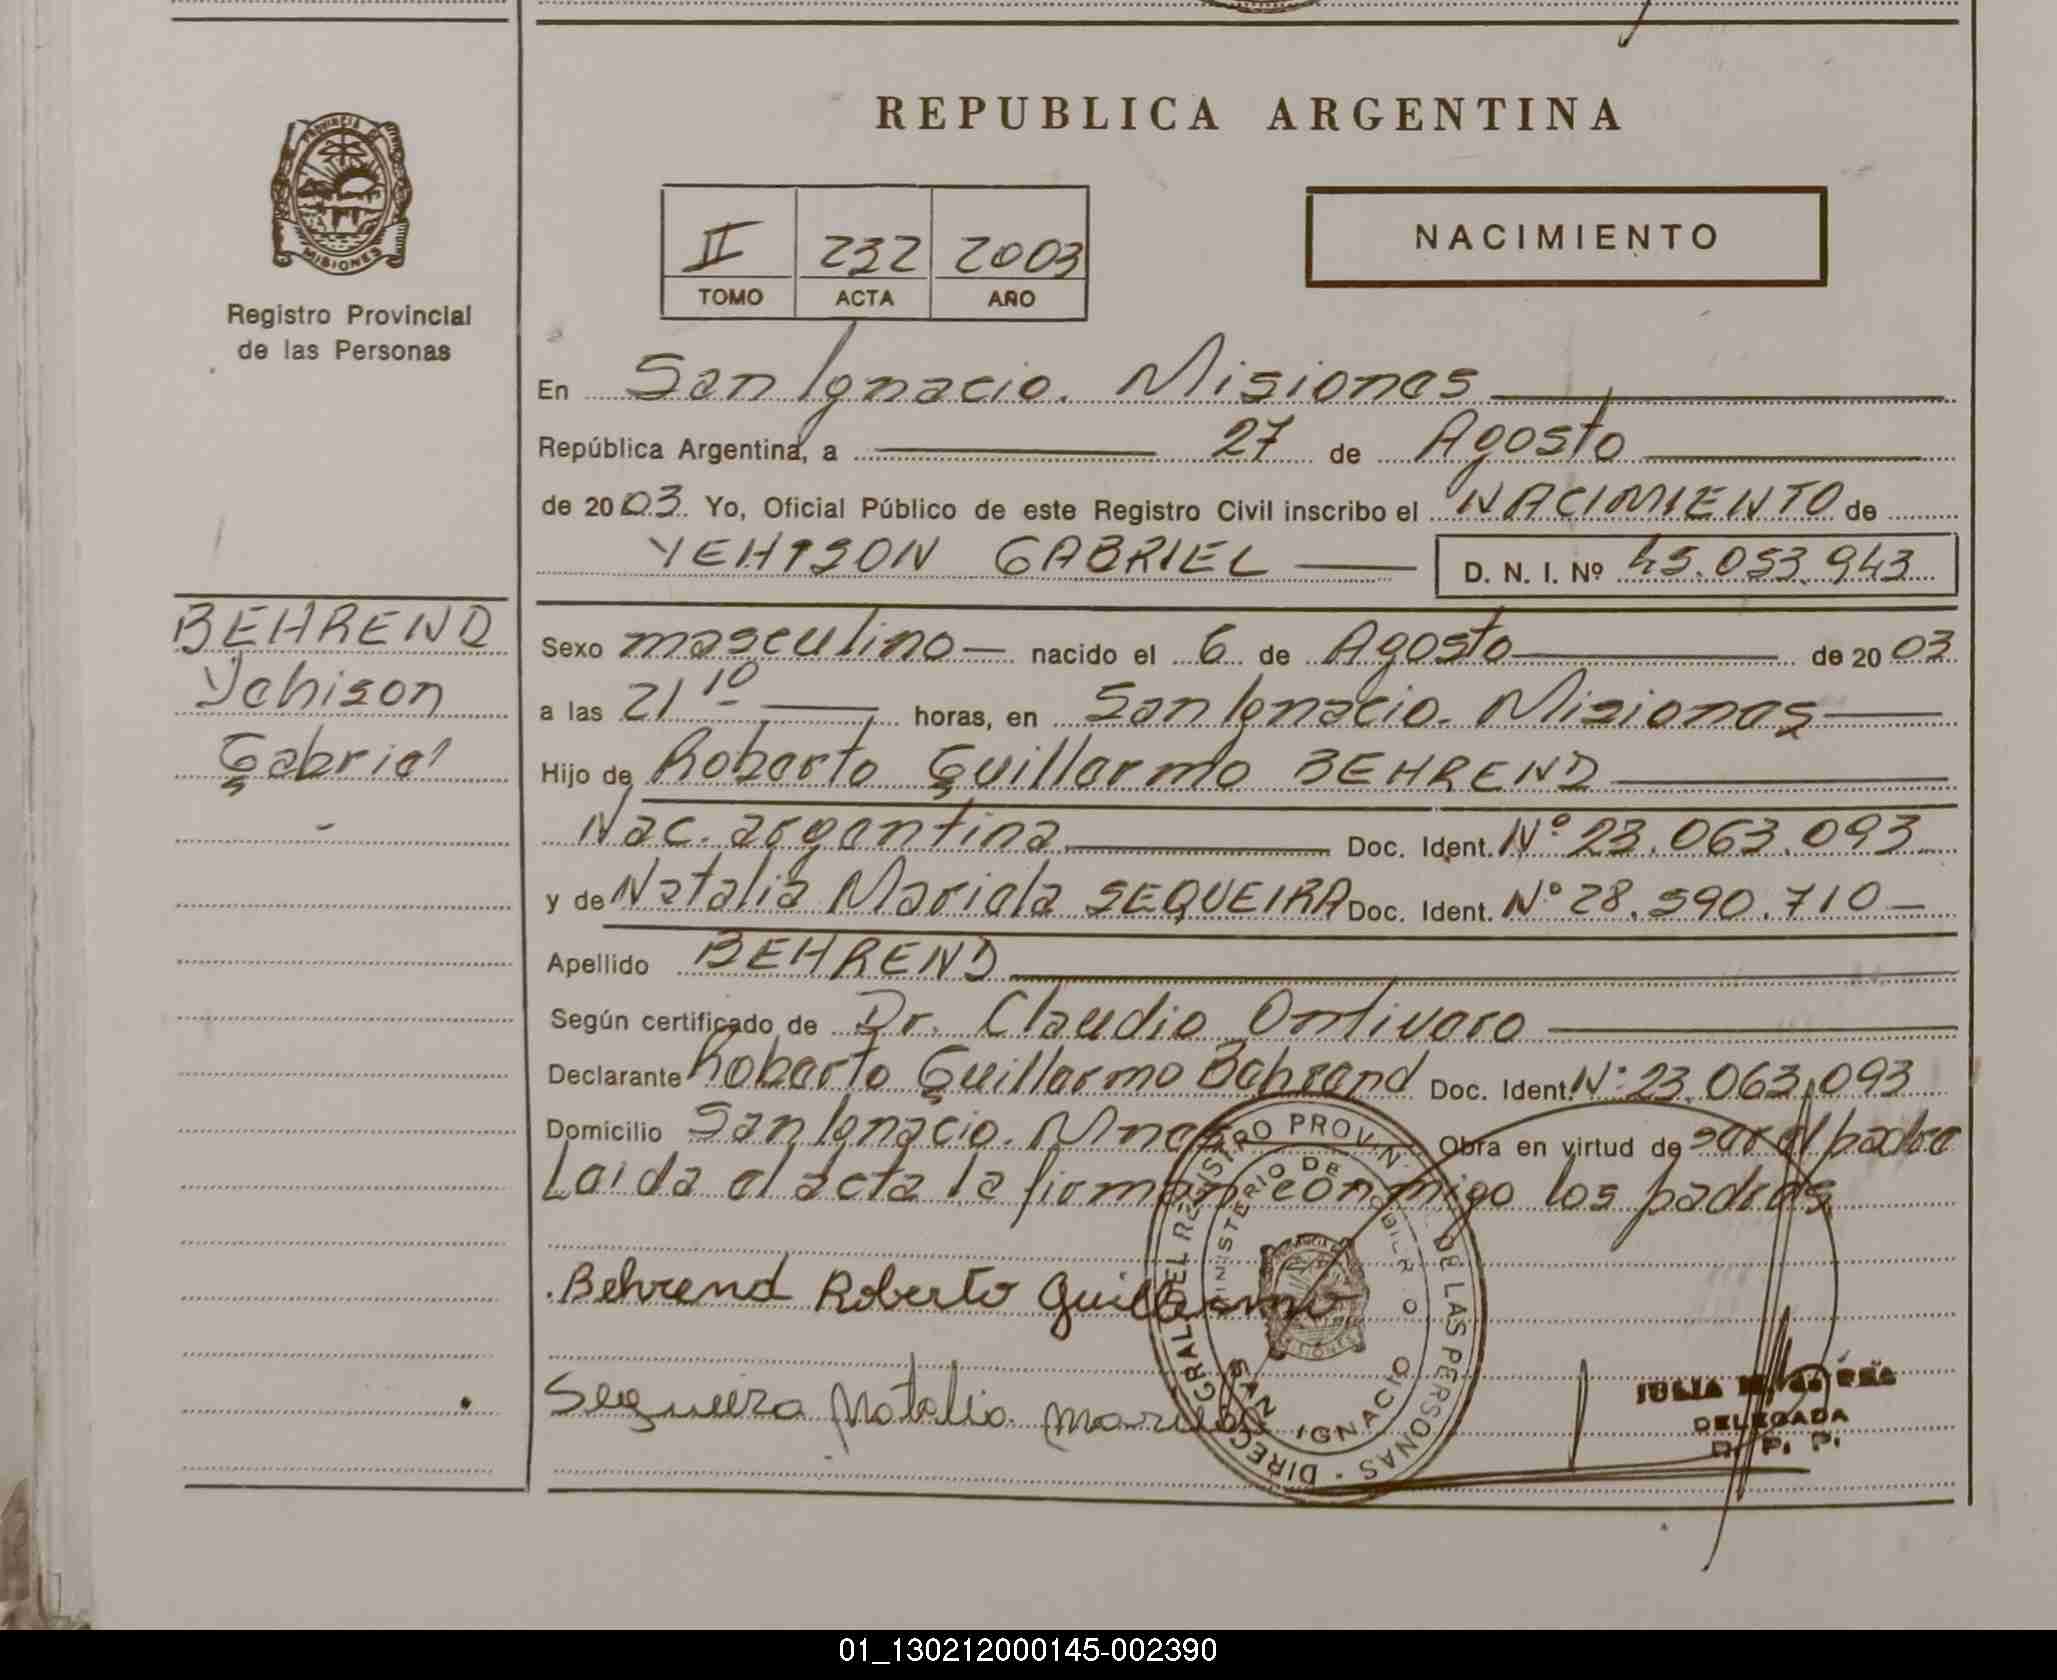 REPUBLICA ARGENTINA
PROVINCIA DE
MISIONES
Registro Provincial
de las Personas
II 232 2003
TOMO ACTA AÑO
NACIMIENTO
En San Ignacio. Misiones
República Argentina, a 27 de Agosto
de 2003. Yo, Oficial Público de este Registro Civil inscribo el NACIMIENTO de
YEHISON GABRIEL D. N. I. Nº 45.053.943
BEHREND
Yehison
Gabriel
Sexo masculino nacido el 6 de Agosto de 2003
a las 21 10 horas, en San Ignacio. Misiones
Hijo de Roberto Guillermo BEHREND
Nac. argentina Doc. Ident. Nº 23.063.093
y de Natalia Mariela SEQUEIRA Doc. Ident. Nº 28.590.710
Apellido BEHREND
Según certificado de Dr. Claudio Ontivero
Declarante Roberto Guillermo Behrend Doc. Ident. Nº 23.063.093
Domicilio San Ignacio. Mnes Obra en virtud de ser el padre
Leida el acta la firman conmigo los padres
Behrend Roberto Guillermo
Sequeira Natalia Mariela
DIRECC. GRAL. DEL REGISTRO PROVIN. DE LAS PERSONAS
MINISTERIO DE
SAN IGNACIO
JULIA
DELEGADA
R. P. P.
01_130212000145-002390